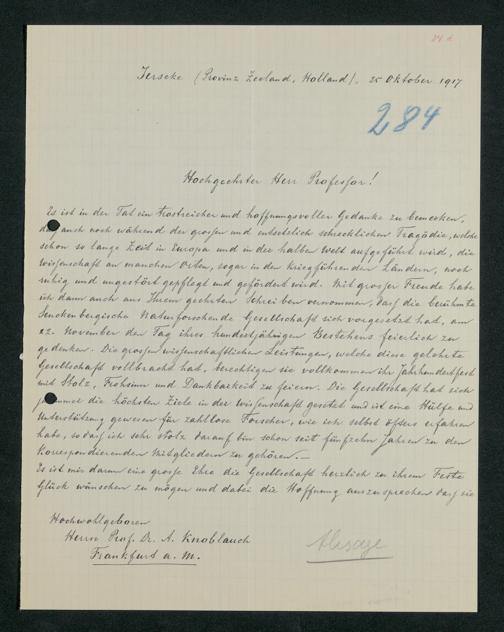 Ierseke (Provinz Zeeland, Holland). 25 Oktober 1917
284
Hochgeehrter Herr Professor!
Es ist in der Tat ein trostreicher und hoffnungsvoller Gedanke zu bemerken,
auch noch während der großen und entsetzlich schrecklichen Tragödie, welche
schon so lange Zeit in Europa und in der halben Welt aufgeführt wird, die
Wissenschaft an manchen Orten, sogar in den kriegführenden Ländern, noch
ruhig und ungestört gepflegt und gefördert wird. Mit großer Freude habe
ich dann auch aus Ihrem geehrten Schreiben vernommen, daß die berühmte
Senckenbergische Naturforschende Gesellschaft sich vorgesetzt hat, am
22. November den Tag ihres hundertjährigen Bestehens feierlich zu
gedenken. Die großen wissenschaftlichen Leistungen, welche diese gelehrte
Gesellschaft vollbracht hat, berechtigen sie vollkommen ihr Jahrhundertfest
mit Stolz, Frohsinn und Dankbarkeit zu feiern. Die Gesellschaft hat sich
immer die höchsten Ziele in der Wissenschaft gesetzt und ist eine Hülfe und
Unterstützung gewesen für zahllose Forscher, wie ich selbst öfters erfahren
habe, so daß ich sehr stolz darauf bin schon seit fünfzehn Jahren zu den
Korrespondierenden Mitgliedern zu gehören.—
Es ist mir darum eine große Ehre die Gesellschaft herzlich zu ihrem Feste
Glück wünschen zu mögen und dabei die Hoffnung auszusprechen daß sie
Hochwohlgeboren
Herrn Prof. Dr. A. Knoblauch
Frankfurt a. M.